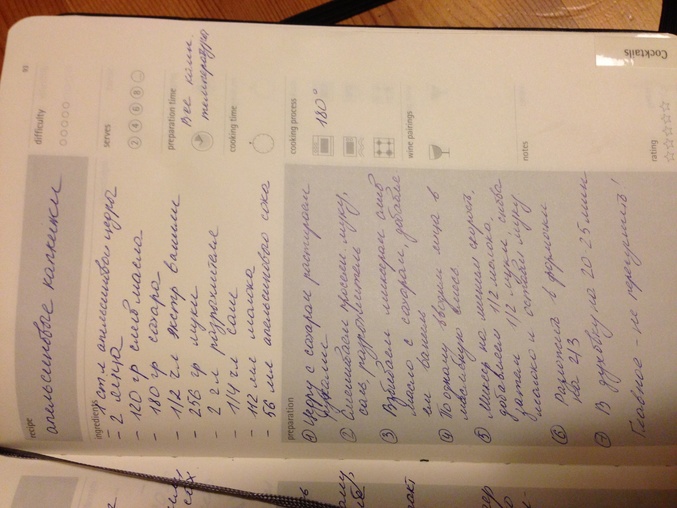 recipe
апельсиновые капкейки
ingredients
- 1 ст л апельсиновой цедры
- 2 яйца
- 120 гр слив масла
- 180 гр сахара
- 1/2 ч л экстр ванили
- 256 гр муки
- 2 ч л разрыхлителя
- 1/4 ч л соли
- 112 мл молока
- 56 мл апельсинового сока
difficulty
serves
2 4 6 8
preparation time
Все комн.
температуры
cooking time
preparation
① Цедру с сахаром растираем
руками
② Смешиваем просеян муку,
соль, разрыхлитель
③ Взбиваем миксером слив
масло с сахаром, добавляем
ваниль
④ По одному вводим яйца в
масляную смесь
⑤ Миксер на меньшей скорости,
добавляем 1/2 молока,
затем 1/2 муки, снова
молоко и остатки муки
⑥ Разложить в формочки
на 2/3
⑦ В духовку на 20 25 мин
Главное - не пересушить!
cooking process
180°
wine pairings
notes
rating
Cocktails